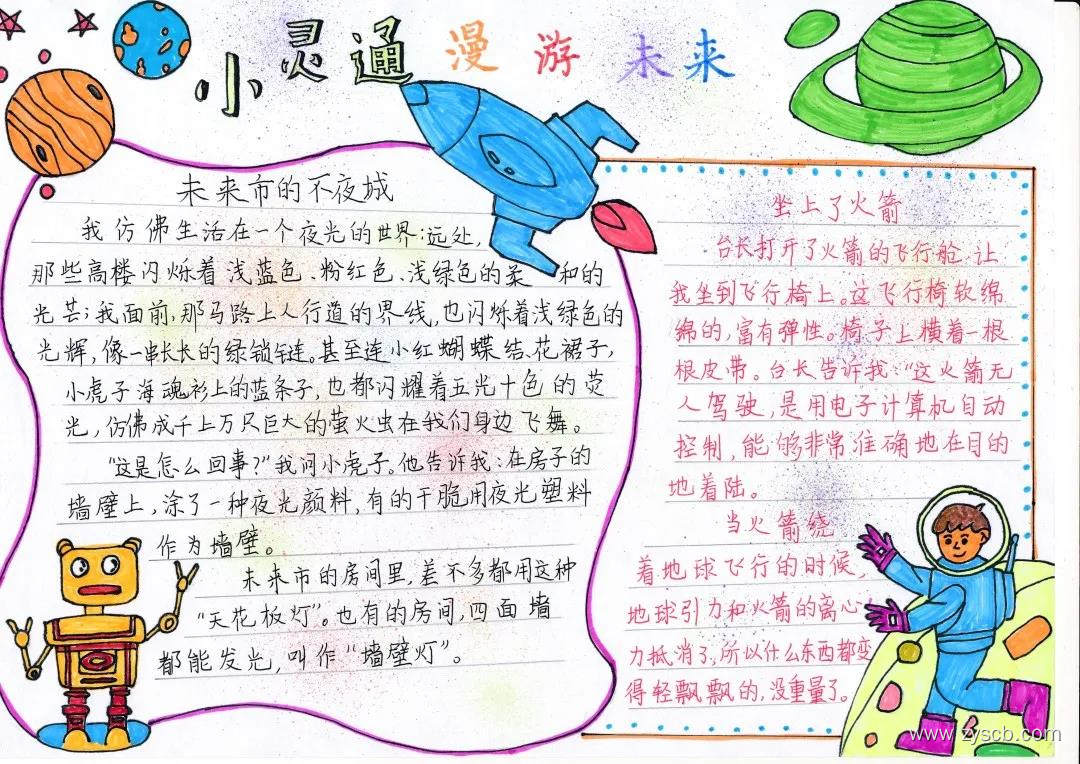 小灵通漫游未来
未来市的不夜城
我仿佛生活在一个夜光的世界:远处,
那些高楼闪烁着浅蓝色、粉红色、浅绿色的柔和的
光芒;我面前,那马路上人行道的界线,也闪烁着浅绿色的
光辉,像一串长长的绿锁链。甚至连小红蝴蝶结、花裙子,
小虎子海魂衫上的蓝条子,也都闪耀着五光十色的荧
光,仿佛成千上万只巨大的萤火虫在我们身边飞舞。
“这是怎么回事?”我问小虎子。他告诉我:在房子的
墙壁上,涂了一种夜光颜料,有的干脆用夜光塑料
作为墙壁。
未来市的房间里,差不多都用这种
“天花板灯”。也有的房间,四面墙
都能发光,叫作“墙壁灯”。
坐上了火箭
台长打开了火箭的飞行舱,让
我坐到飞行椅上。这飞行椅软绵
绵的,富有弹性。椅子上横着一根
根皮带。台长告诉我:“这火箭无
人驾驶,是用电子计算机自动
控制,能够非常准确地在目的
地着陆。
当火箭绕
着地球飞行的时候,
地球引力和火箭的离心
力抵消了,所以什么东西都变
得轻飘飘的,没重量了。
www.zyscb.com